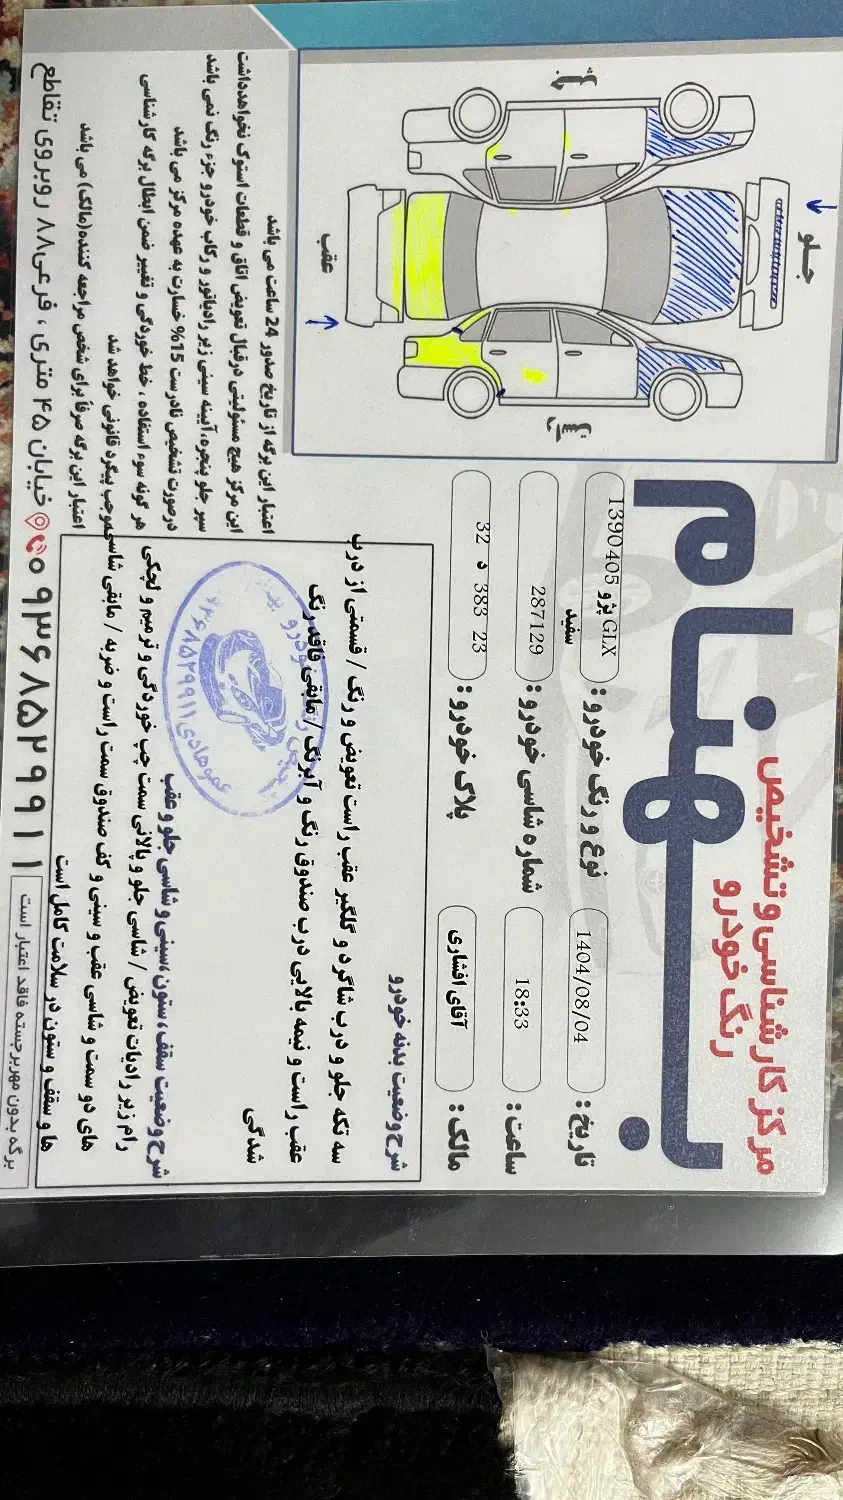 مرکز کارشناسی و تشخیص
رنگ خودرو
بهنام
نوع و رنگ خودرو : پژو 405 GLX 1390
سفید
تاریخ : 1404/08/04
شماره شاسی خودرو : 287129
ساعت : 18:33
پلاک خودرو : 23 383 د 32
مالک : آقای افشاری
جلو
عقب
چپ
راست
شرح وضعیت بدنه خودرو
سه تکه جلو و درب شاگرد و گلگیر عقب راست تعویض و رنگ / قسمتی از درب
عقب راست و نیمه بالایی درب صندوق رنگ و آبرنگ / مابقی فاقد رنگ
شدگی
شرح وضعیت سقف ، ستون ،سینی و شاسی جلو و عقب
رام زیر رادیات تعویض / شاسی جلو و پالانی سمت چپ خوردگی و ترمیم و لچکی
های دو سمت و شاسی عقب و سینی و کف صندوق سمت راست و ضربه / مابقی شاسی
ها و سقف و ستون در سلامت کامل است
عموهادی ۰۹۳۶۸۵۲۹۹۱۱
اعتبار این برگه از تاریخ صدور 24 ساعت می باشد
این مرکز هیچ مسئولیتی درقبال تعویض اتاق و قطعات استوک نخواهدداشت
سپر جلو پنجره، آیینه سینی زیر رادیاتور و رکاب خودرو جزء رنگ نمی باشد
درصورت تشخیص نادرست 15% خسارت به عهده مرکز می باشد
هر گونه سوء استفاده ، خط خوردگی و تغییر ضمن ابطال برگه کارشناسی
موجب پیگرد قانونی خواهد شد
اعتبار این برگه صرفاً برای شخص مراجعه کننده(مالک) می باشد
خیابان ۴۵ متری ، فرعی۸۸ روبروی تقاطع
۰۹۳۶۸۵۲۹۹۱۱
برگه بدون مهر برجسته فاقد اعتبار است